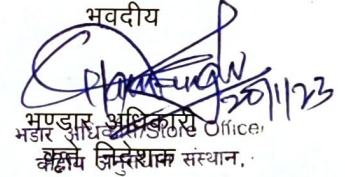 भवदीय
20/1/23
भण्डार अधिकारी
भंडार अधिकारी/Store Officer
कृते निदेशक
संस्थान,